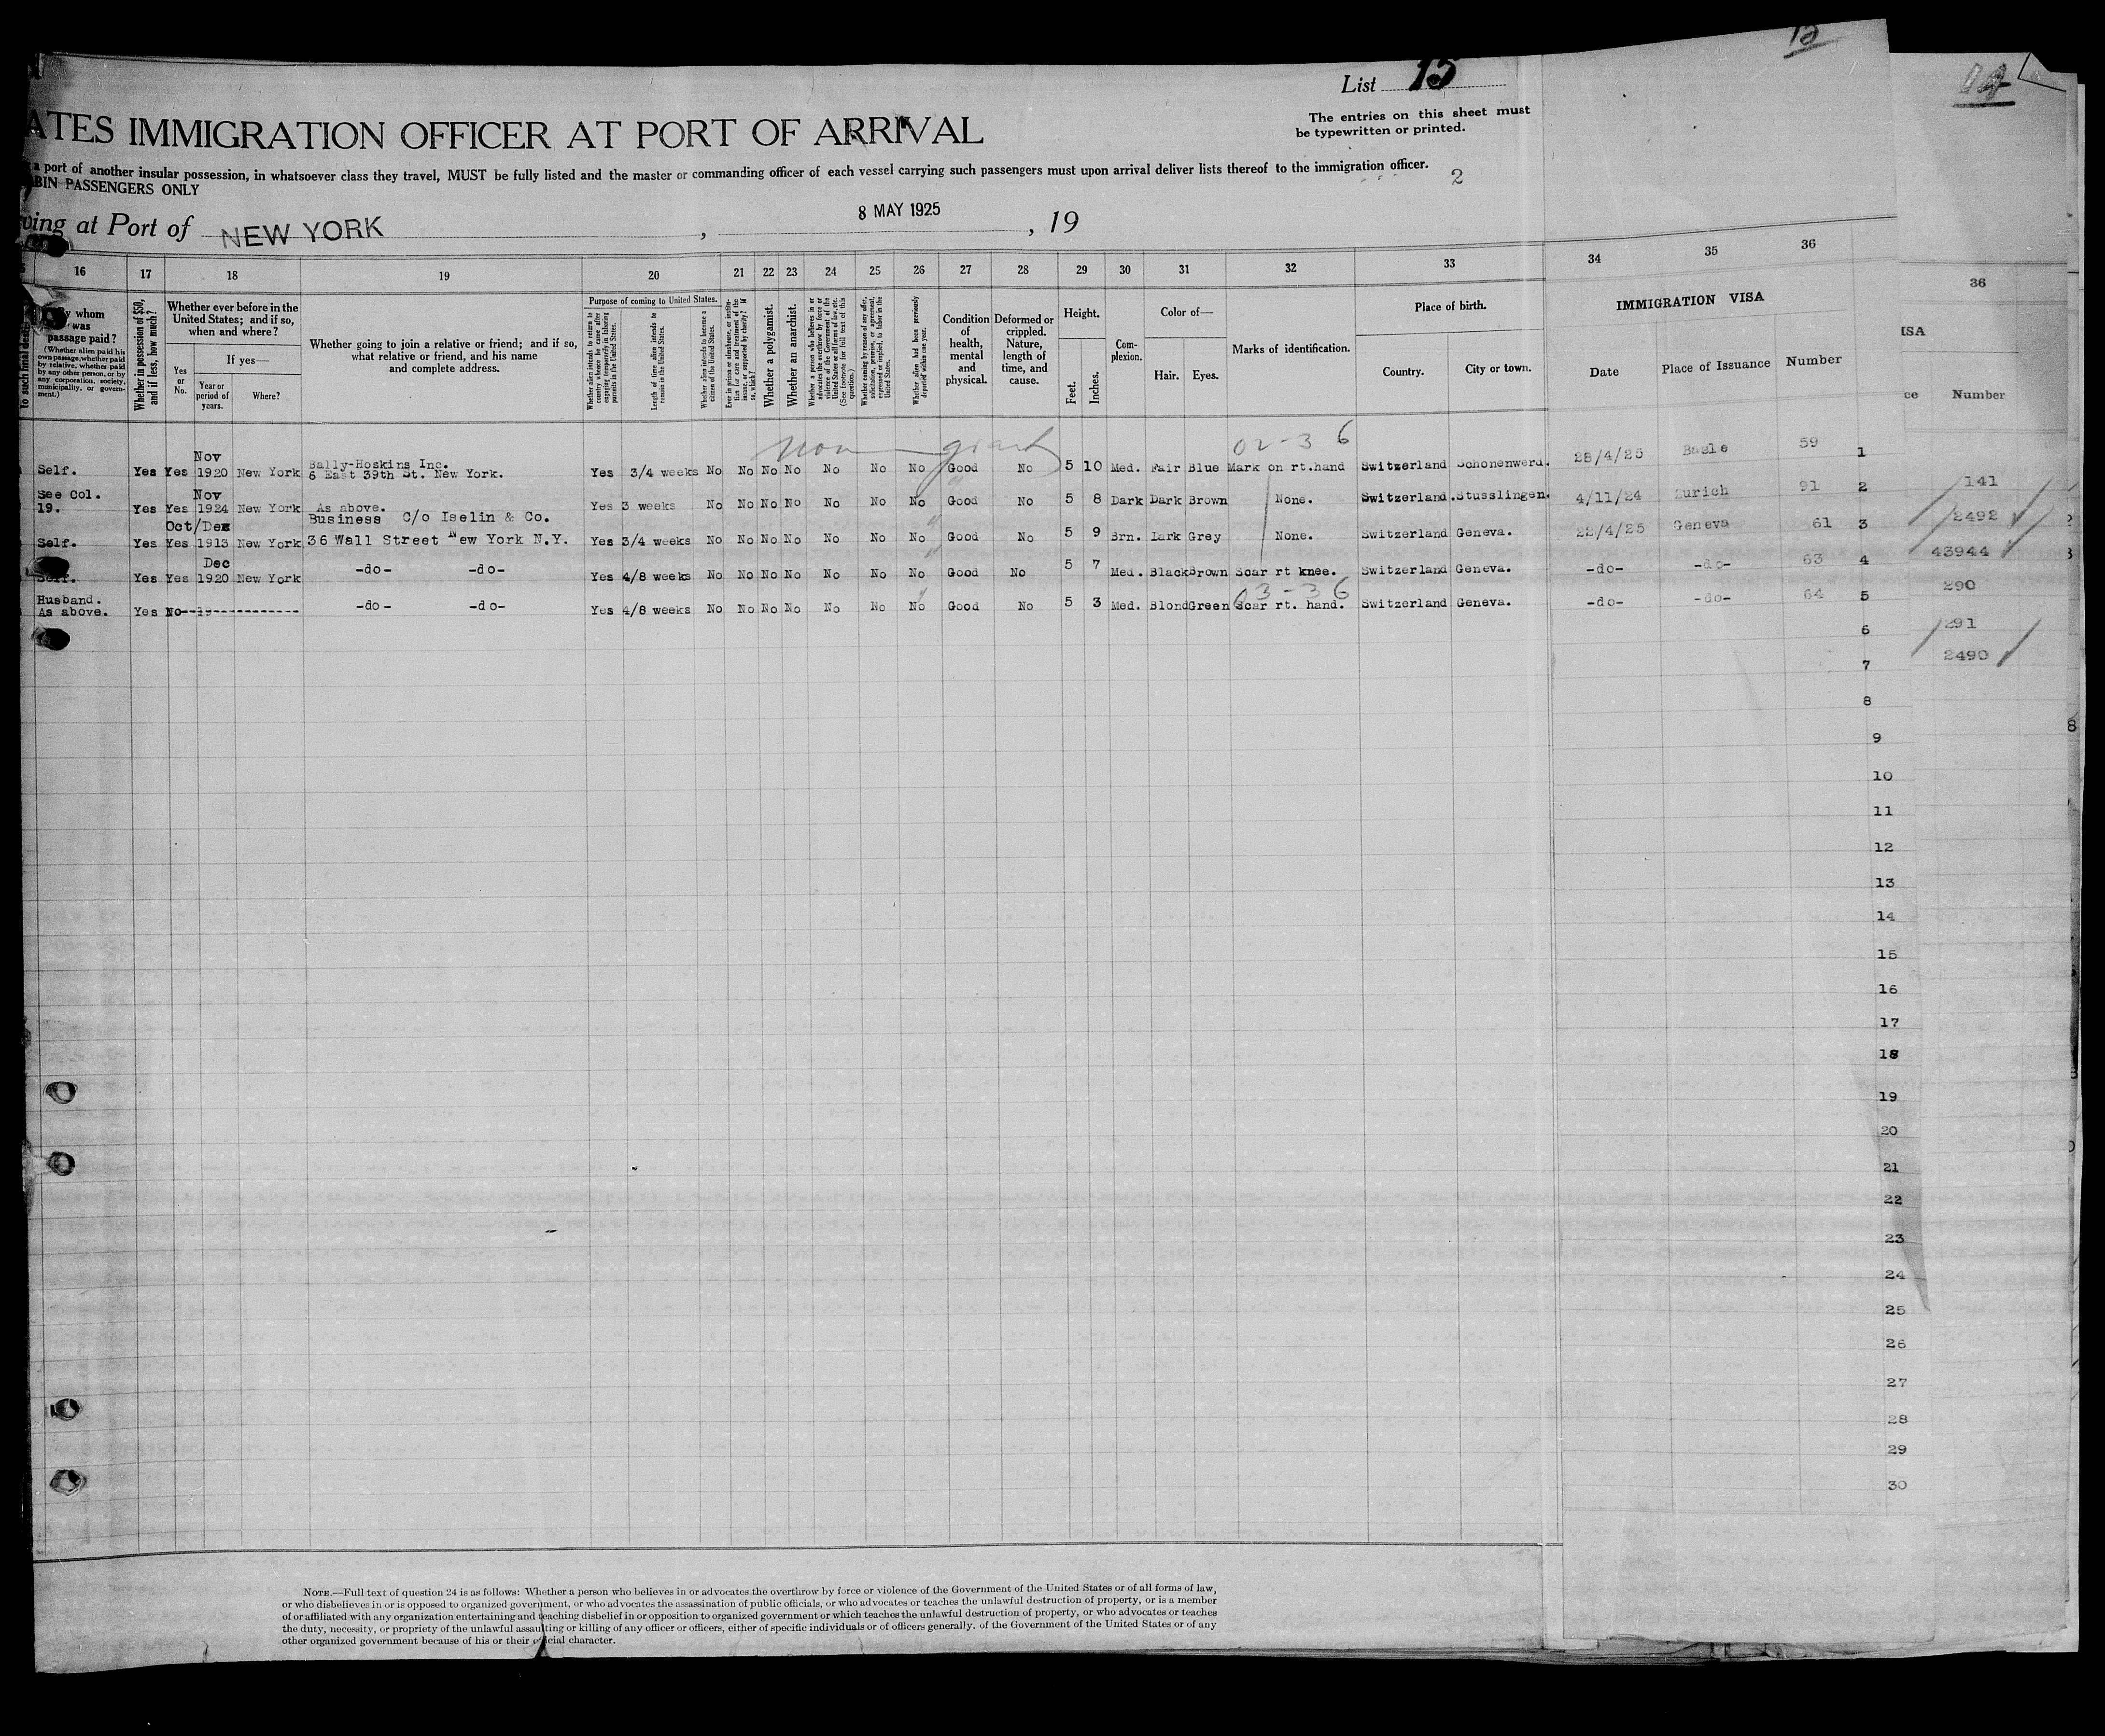 List 15
The entries on this sheet must
be typewritten or printed.
ATES IMMIGRATION OFFICER AT PORT OF ARRIVAL
a port of another insular possession, in whatsoever class they travel, MUST be fully listed and the master or commanding officer of each vessel carrying such passengers must upon arrival deliver lists thereof to the immigration officer.
BIN PASSENGERS ONLY
2
ving at Port of NEW YORK , 8 MAY 1925 , 19
16 17 18 19 20 21 22 23 24 25 26 27 28 29 30 31 32 33 34 35 36
36
By whom was passage paid?
(Whether alien paid his own passage, whether paid by relative, whether paid by any other person, or by any corporation, society, municipality, or government.)
Whether in possession of $50, and if less, how much?
Whether ever before in the United States; and if so, when and where?
Yes or No.
If yes—
Year or period of years.
Where?
Whether going to join a relative or friend; and if so, what relative or friend, and his name and complete address.
Purpose of coming to United States.
Whether alien intends to return to country whence he came after engaging temporarily in laboring pursuits in the United States.
Length of time alien intends to remain in the United States.
Whether alien intends to become a citizen of the United States.
Ever in prison or almshouse, or institution for care and treatment of the insane, or supported by charity? If so, which?
Whether a polygamist.
Whether an anarchist.
Whether a person who believes in or advocates the overthrow by force or violence of the Government of the United States or all forms of law, etc. (See footnote for full text of this question.)
Whether coming by reason of any offer, solicitation, promise, or agreement, expressed or implied, to labor in the United States.
Whether alien had been previously deported within one year.
Condition of health, mental and physical.
Deformed or crippled. Nature, length of time, and cause.
Height.
Feet.
Inches.
Complexion.
Color of—
Hair.
Eyes.
Marks of identification.
Place of birth.
Country.
City or town.
IMMIGRATION VISA
Date
Place of Issuance
Number
ISA
ce
Number
non
02-3 6
Nov
Self. Yes Yes 1920 New York Bally-Hoskins Inc. 6 East 39th St. New York. Yes 3/4 weeks No No No No No No No Good No 5 10 Med. Fair Blue Mark on rt.hand Switzerland Schonenwerd. 28/4/25 Basle 59 1
See Col. Nov
19. Yes Yes 1924 New York As above. Yes 3 weeks No No No No No No No Good No 5 8 Dark Dark Brown None. Switzerland. Stusslingen. 4/11/24 Zurich 91 2
Oct/Dez Business C/o Iselin & Co.
Self. Yes Yes 1913 New York 36 Wall Street New York N.Y. Yes 3/4 weeks No No No No No No No Good No 5 9 Brn. Dark Grey None. Switzerland Geneva. 22/4/25 Geneva 61 3
Dec
Self. Yes Yes 1920 New York -do- -do- Yes 4/8 weeks No No No No No No No Good No 5 7 Med. Black Brown Scar rt knee. Switzerland Geneva. -do- -do- 63 4
03-36
Husband.
As above. Yes No -do- -do- Yes 4/8 weeks No No No No No No No Good No 5 3 Med. Blond Green Scar rt. hand. Switzerland Geneva. -do- -do- 64 5
141
2492
43944
290
291
2490
6
7
8
9
10
11
12
13
14
15
16
17
18
19
20
21
22
23
24
25
26
27
28
29
30
NOTE.—Full text of question 24 is as follows: Whether a person who believes in or advocates the overthrow by force or violence of the Government of the United States or of all forms of law,
or who disbelieves in or is opposed to organized government, or who advocates the assassination of public officials, or who advocates or teaches the unlawful destruction of property, or is a member
of or affiliated with any organization entertaining and teaching disbelief in or opposition to organized government or which teaches the unlawful destruction of property, or who advocates or teaches
the duty, necessity, or propriety of the unlawful assaulting or killing of any officer or officers, either of specific individuals or of officers generally, of the Government of the United States or of any
other organized government because of his or their official character.